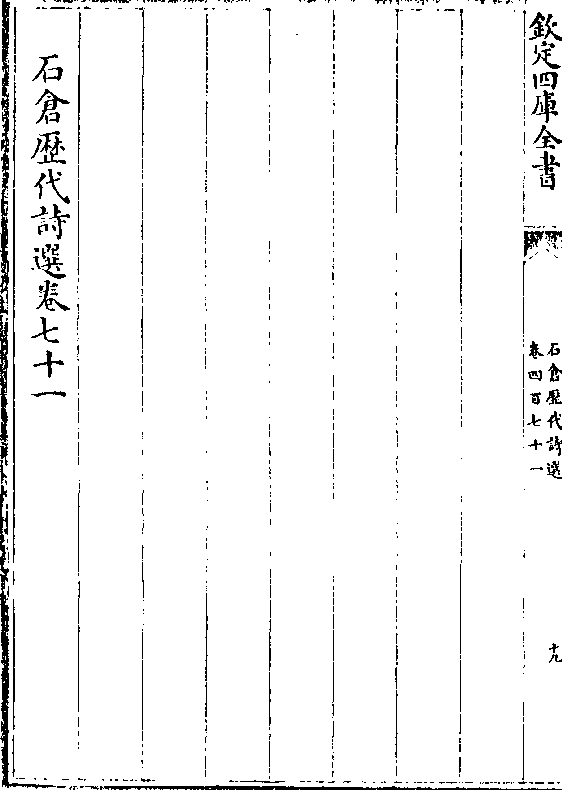 欽定四庫全書
石倉歷代詩選
卷四百七十一
十九
石倉歷代詩選卷七十一